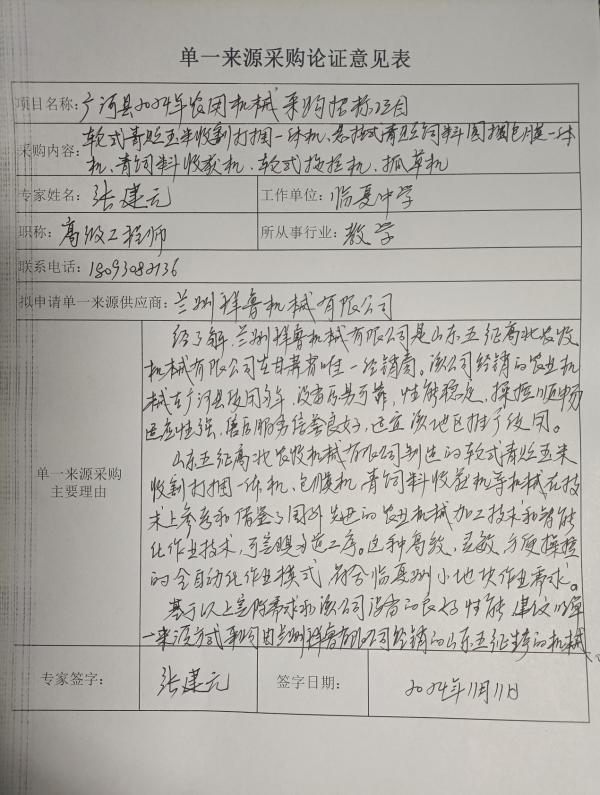 单一来源采购论证意见表
项目名称：广河县2024年农用机械采购招标项目
采购内容：轮式青贮玉米收割打捆一体机、悬挂式青贮饲料圆捆包膜一体
机、青饲料收获机、轮式拖拉机、抓草机
专家姓名：张建元 工作单位：临夏中学
职称：高级工程师 所从事行业：教学
联系电话：18093082136
拟申请单一来源供应商：兰州祥鲁机械有限公司
单一来源采购
主要理由
经了解，兰州祥鲁机械有限公司是山东五征高北农牧
机械有限公司在甘肃省唯一经销商。该公司经销的农业机
械在广河县使用多年，设备质量可靠，性能稳定，操控顺畅
适应性强，售后服务信誉良好，适宜该地区推广使用。
山东五征高北农牧机械有限公司制造的轮式青贮玉米
收割打捆一体机、包膜机、青饲料收获机等机械在技
术上参考和借鉴了国外先进的农业机械加工技术和智能
化作业技术，可实现多道工序。这种高效，灵敏，方便操控
的全自动化作业模式，符合临夏州小地块作业需求。
基于以上实际需求和该公司设备的良好性能，建议以单
一来源方式采购由兰州祥鲁有限公司经销的山东五征生产的机械。
专家签字： 张建元 签字日期： 2024年11月11日